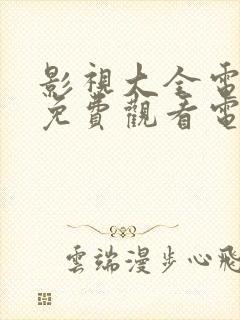 影視大全電
免費觀看電
雲端漫步心飛